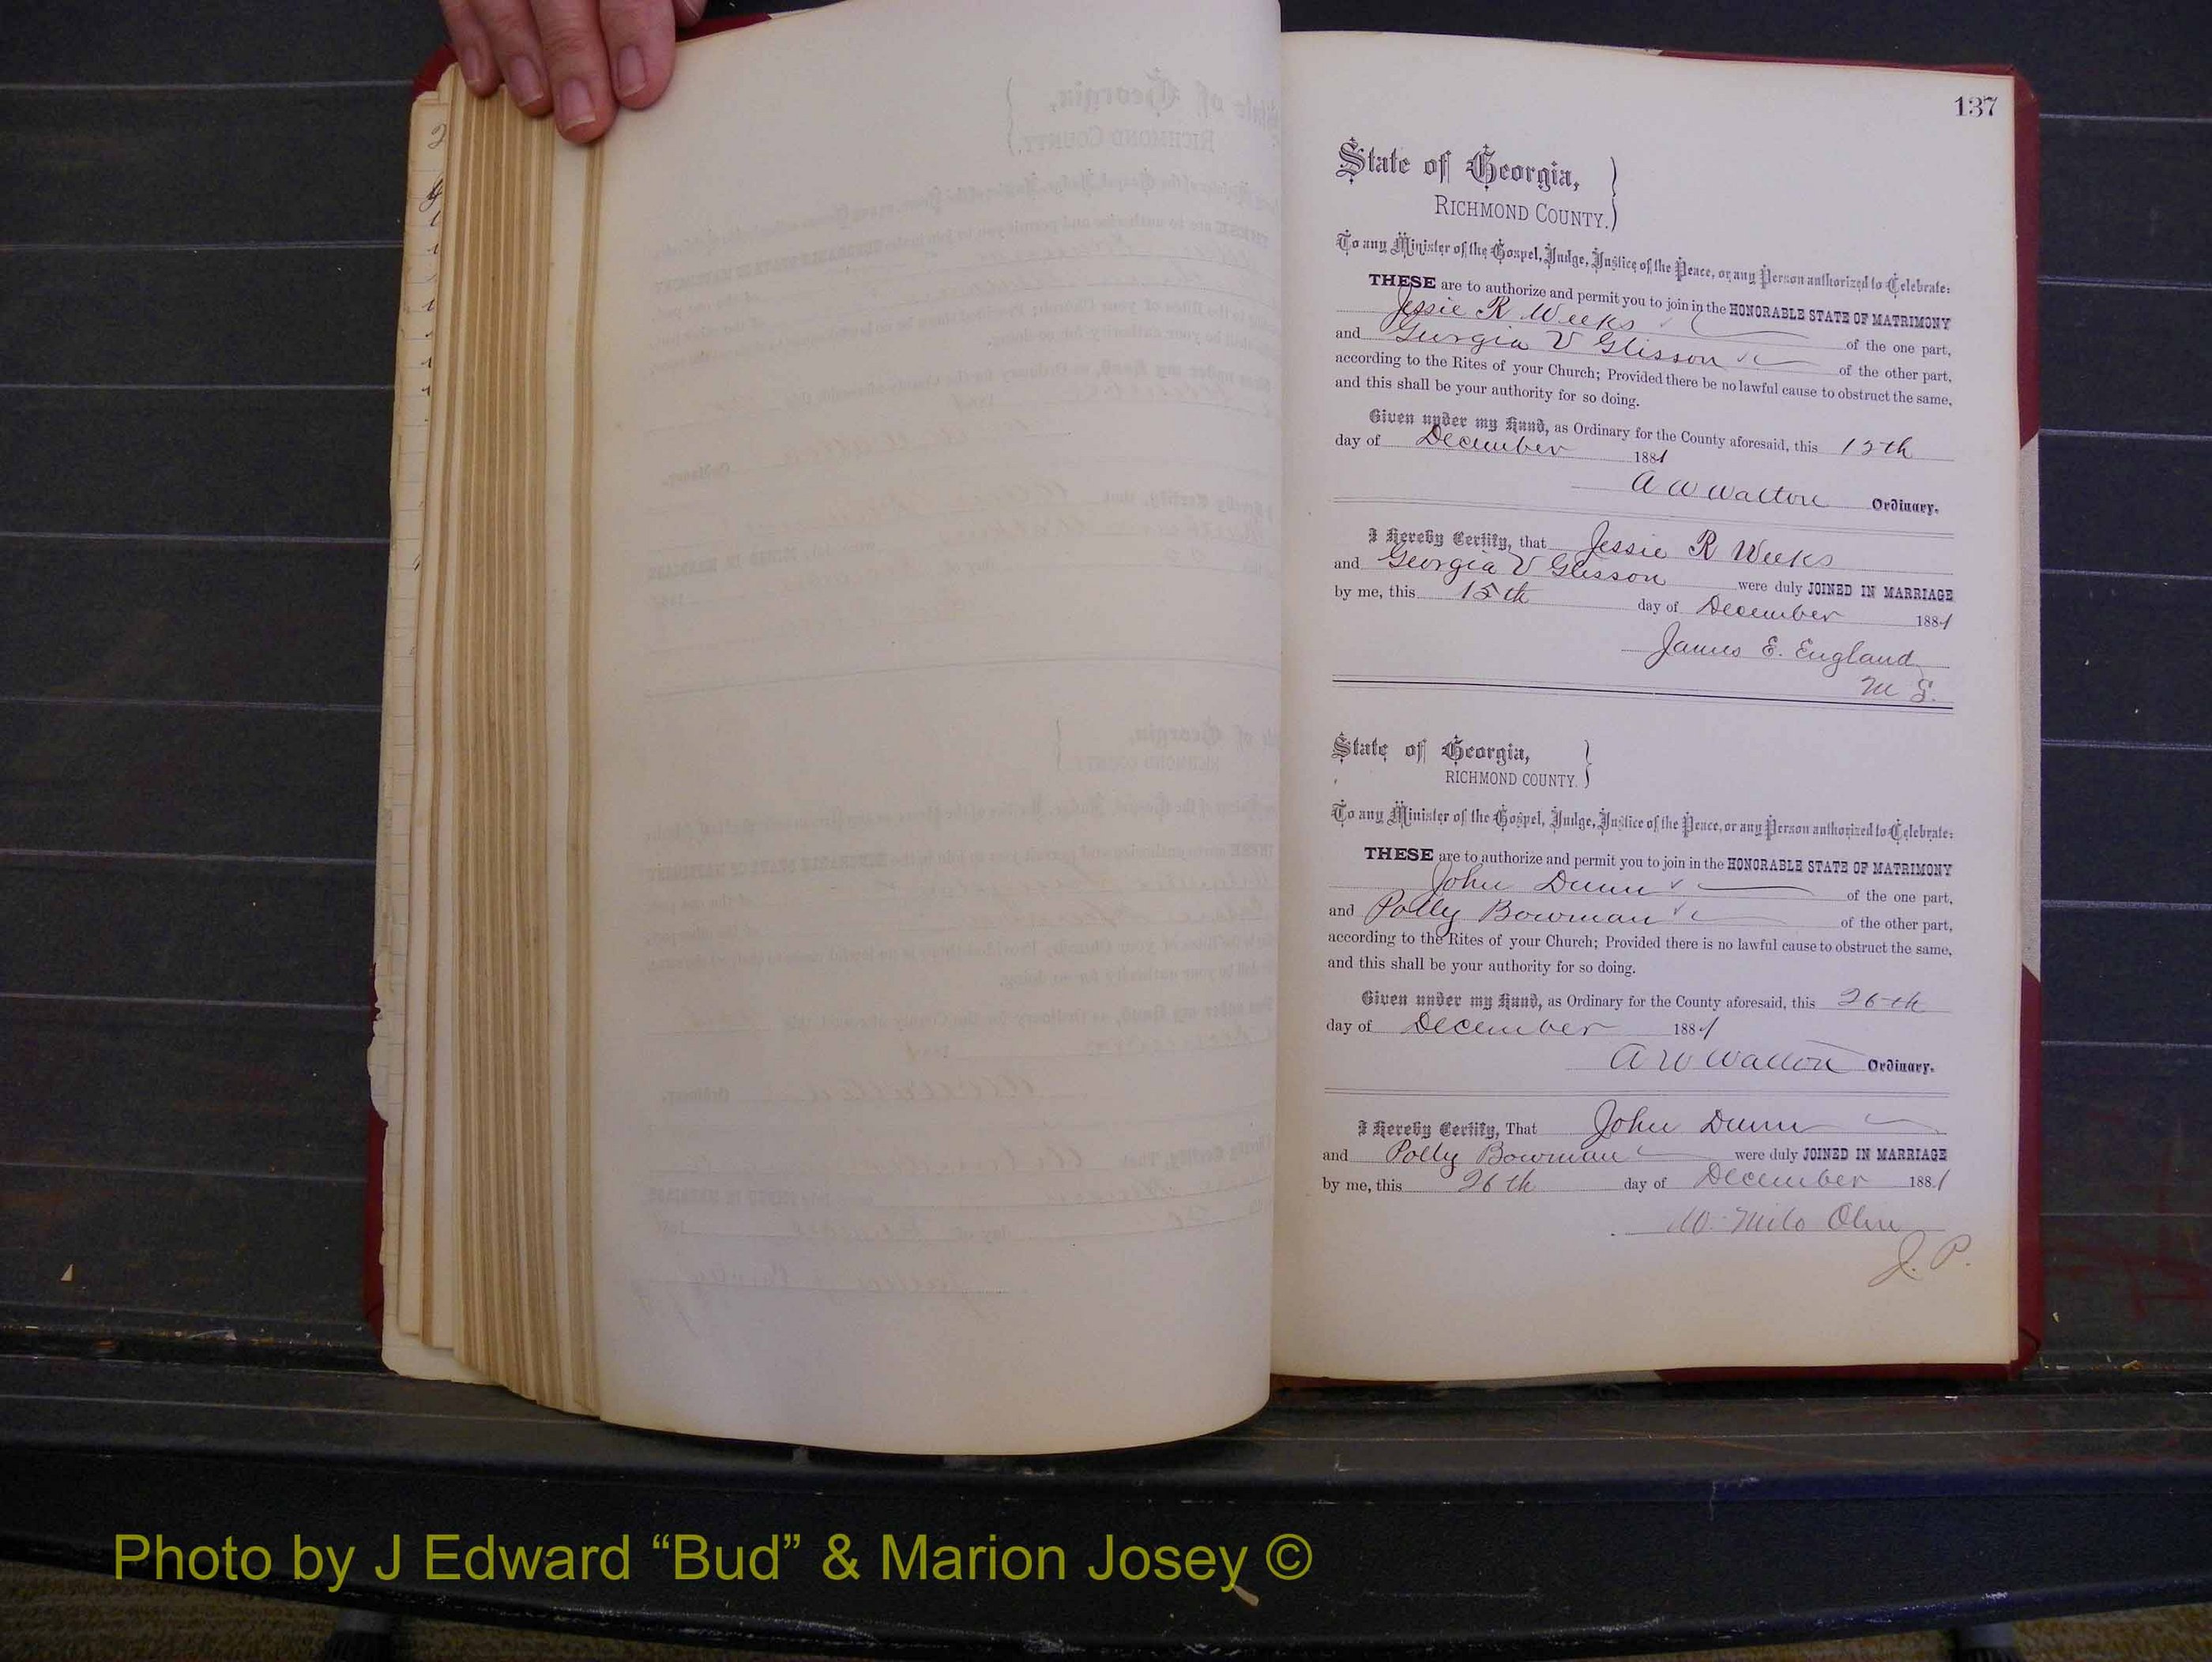 137
State of Georgia,
RICHMOND COUNTY.
To any Minister of the Gospel, Judge, Justice of the Peace, or any Person authorized to Celebrate:
THESE are to authorize and permit you to join in the HONORABLE STATE OF MATRIMONY
Jessie R Weeks of the one part,
and Georgia V Glisson of the other part,
according to the Rites of your Church; Provided there be no lawful cause to obstruct the same,
and this shall be your authority for so doing.
Given under my Hand, as Ordinary for the County aforesaid, this 15th
day of December 1881
A W Walton Ordinary.
I Hereby Certify, that Jessie R Weeks
and Georgia V Glisson were duly JOINED IN MARRIAGE
by me, this 15th day of December 1881
James E. England
M G.
State of Georgia,
RICHMOND COUNTY.
To any Minister of the Gospel, Judge, Justice of the Peace, or any Person authorized to Celebrate:
THESE are to authorize and permit you to join in the HONORABLE STATE OF MATRIMONY
John Dunn of the one part,
and Polly Bowman of the other part,
according to the Rites of your Church; Provided there is no lawful cause to obstruct the same,
and this shall be your authority for so doing.
Given under my Hand, as Ordinary for the County aforesaid, this 26th
day of December 1881
A W Walton Ordinary.
I Hereby Certify, That John Dunn
and Polly Bowman were duly JOINED IN MARRIAGE
by me, this 26th day of December 1881
W. Milo Olin
J. P.
Photo by J Edward “Bud” & Marion Josey ©